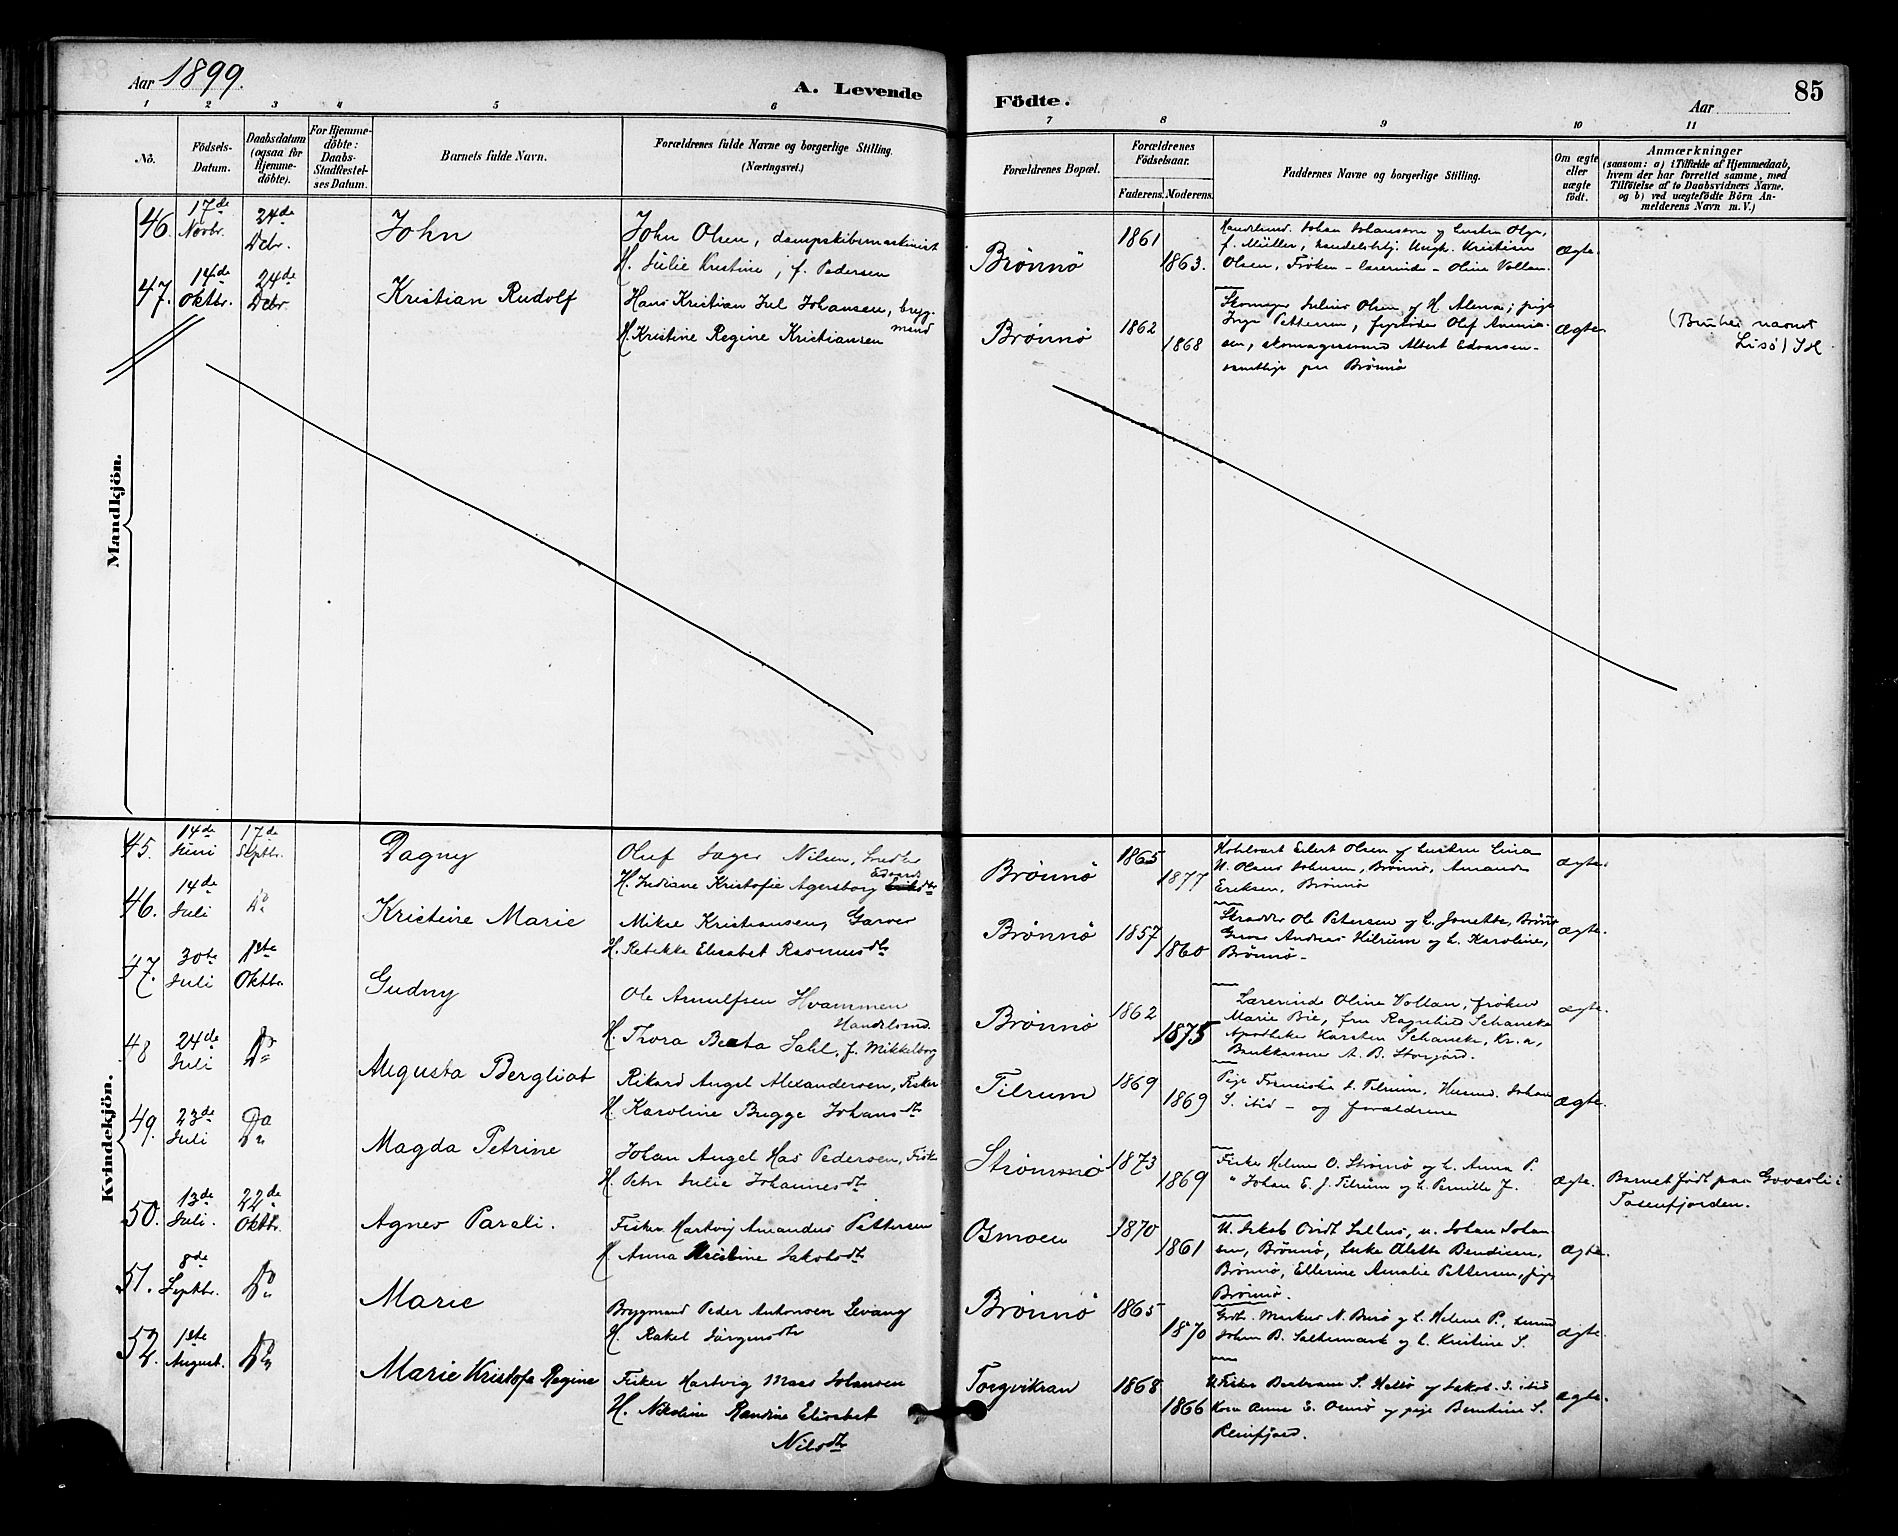 Aar 1899.
A. Levende
Födte.
Aar
85
1 2 3 4 5 6 7 8 9 10 11
No.
Födsels-
Datum.
Daabsdatum
(ogsaa for
Hjemme-
döbte).
For Hjemme-
döbte:
Daabs-
Stadfæstel-
ses Datum.
Barnets fulde Navn.
Forældrenes fulde Navne og borgerlige Stilling.
(Næringsvei.)
Forældrenes Bopæl.
Forældrenes
Födselsaar.
Faderens. Moderens.
Faddernes Navne og borgerlige Stilling.
Om ægte
eller
uægte
födt.
Anmærkninger
(saasom: a) i Tilfælde af Hjemmedaab,
hvem der har forrettet samme, med
Tilföielse af to Daabsvidners Navne.
og b) ved uægtefödte Börn An-
melderens Navn m. V.)
Mandkjön.
46. 17de Novbr. 24de Debr. John
John Olsen, dampskibsmaskinist
H. Julie Kristine, f. Pedersen
Brönnö 1861 1863.
Johan Johansen
f. Müller, Kristine
Olsen, Frøken - lærerinde - Oline Vollan
ægte.
47. 14de Oktbr. 24de Debr. Kristian Rudolf
Hans Kristian Juel Johansen, bryg-
mand
H. Kristine Regine Kristiansen
Brönnö 1862 1868
Skomager Julius Olsen og H. Alena; pige
Pettersen, fyrbøder Olef
skomagersvend Albert Edvarsen -
samtlige paa Brönnö
ægte.
navnet
Lisö)
Kvindekjön.
45. 14de Juni 17de Septbr. Dagny
Oluf Jæger Nilsen, Snedker
H. Indiane Kristofie Agersborg Edvardsdtr
Brönnö 1865 1877
Eilert Olsen og Hustru Lina
U. Olaus Johnsen, Brönnö, Amanda
Eriksen, Brönnö
ægte.
46. 14de Juli Do Kristine Marie
Mikal Kristiansen, Garver
H. Rebekka Elisabet Rasmusdtr
Brönnö 1857 1860
Skrædder Ole Petersen og h. Jonetta, Brönnö
Andreas Hilrum og h. Karoline,
Brönnö -
ægte.
47. 30te Juli 1ste Oktbr. Gudny
Ole Arnulfsen Hvammen
Handelsmd.
H. Thora Beata Dahl, f. Mikkelborg
Brönnö 1862 1875
Lærerinde Oline Vollan, frøken
Marie Bie, fru Ragnhild Schancke
Apotheker Karsten Schancke, Kr. a,
Bankkasserer A. B. Storjord.
ægte.
48 24de Juli Do Augusta Bergliot
Rikard Angel Alexandersen, Fisker
H. Karoline Bugge Johansdtr
Tilrum 1869 1869
Pige Franciska S. Tilrum, Husmd. Johan
S. ibid - og forældrene
ægte.
49. 23de Juli Do Magda Petrine
Johan Angel Has Pedersen, Fisker
H. Petra Julie Johannesdtr
Strömmö 1873 1869
Fisker Helmer O. Strömö og h. Anna P.
" Johan E. J. Tilrum og h. Pernille J.
ægte.
Barnet født paa
Tosenfjorden.
50. 13de Juli. 22de Oktbr. Agnes Pareli.
Fisker Hartvig Amandus Pettersen
H. Anna Kristine Jakobsdtr
Osmoen 1870 1861
U. Jakob Johan Johan-
sen, Brönnö, Enke Aletta Bendiksen,
Brönnö, Ellerine Amalie Pettersen, pige
Brönnö.
ægte.
51. 8de Septbr. Do Marie
Brygmand Peder Antonsen Levang
H. Rakel Jörgensdtr
Brönnö 1865 1870
Markus N. h. Helene P.,
Johan B. Saltermark og h. Kristine S.
ægte.
52. 1ste August. Do Marie Kristofa Regine
Fisker Hartvig Maas Johansen
H. Nikoline Randine Elisabet
Nilsdtr
Torgvikran 1868 1866
Fisker Bertram S. og Jakob S. ibid
Kone Anne E. og pige Berntine S.
Reinfjord.
ægte.